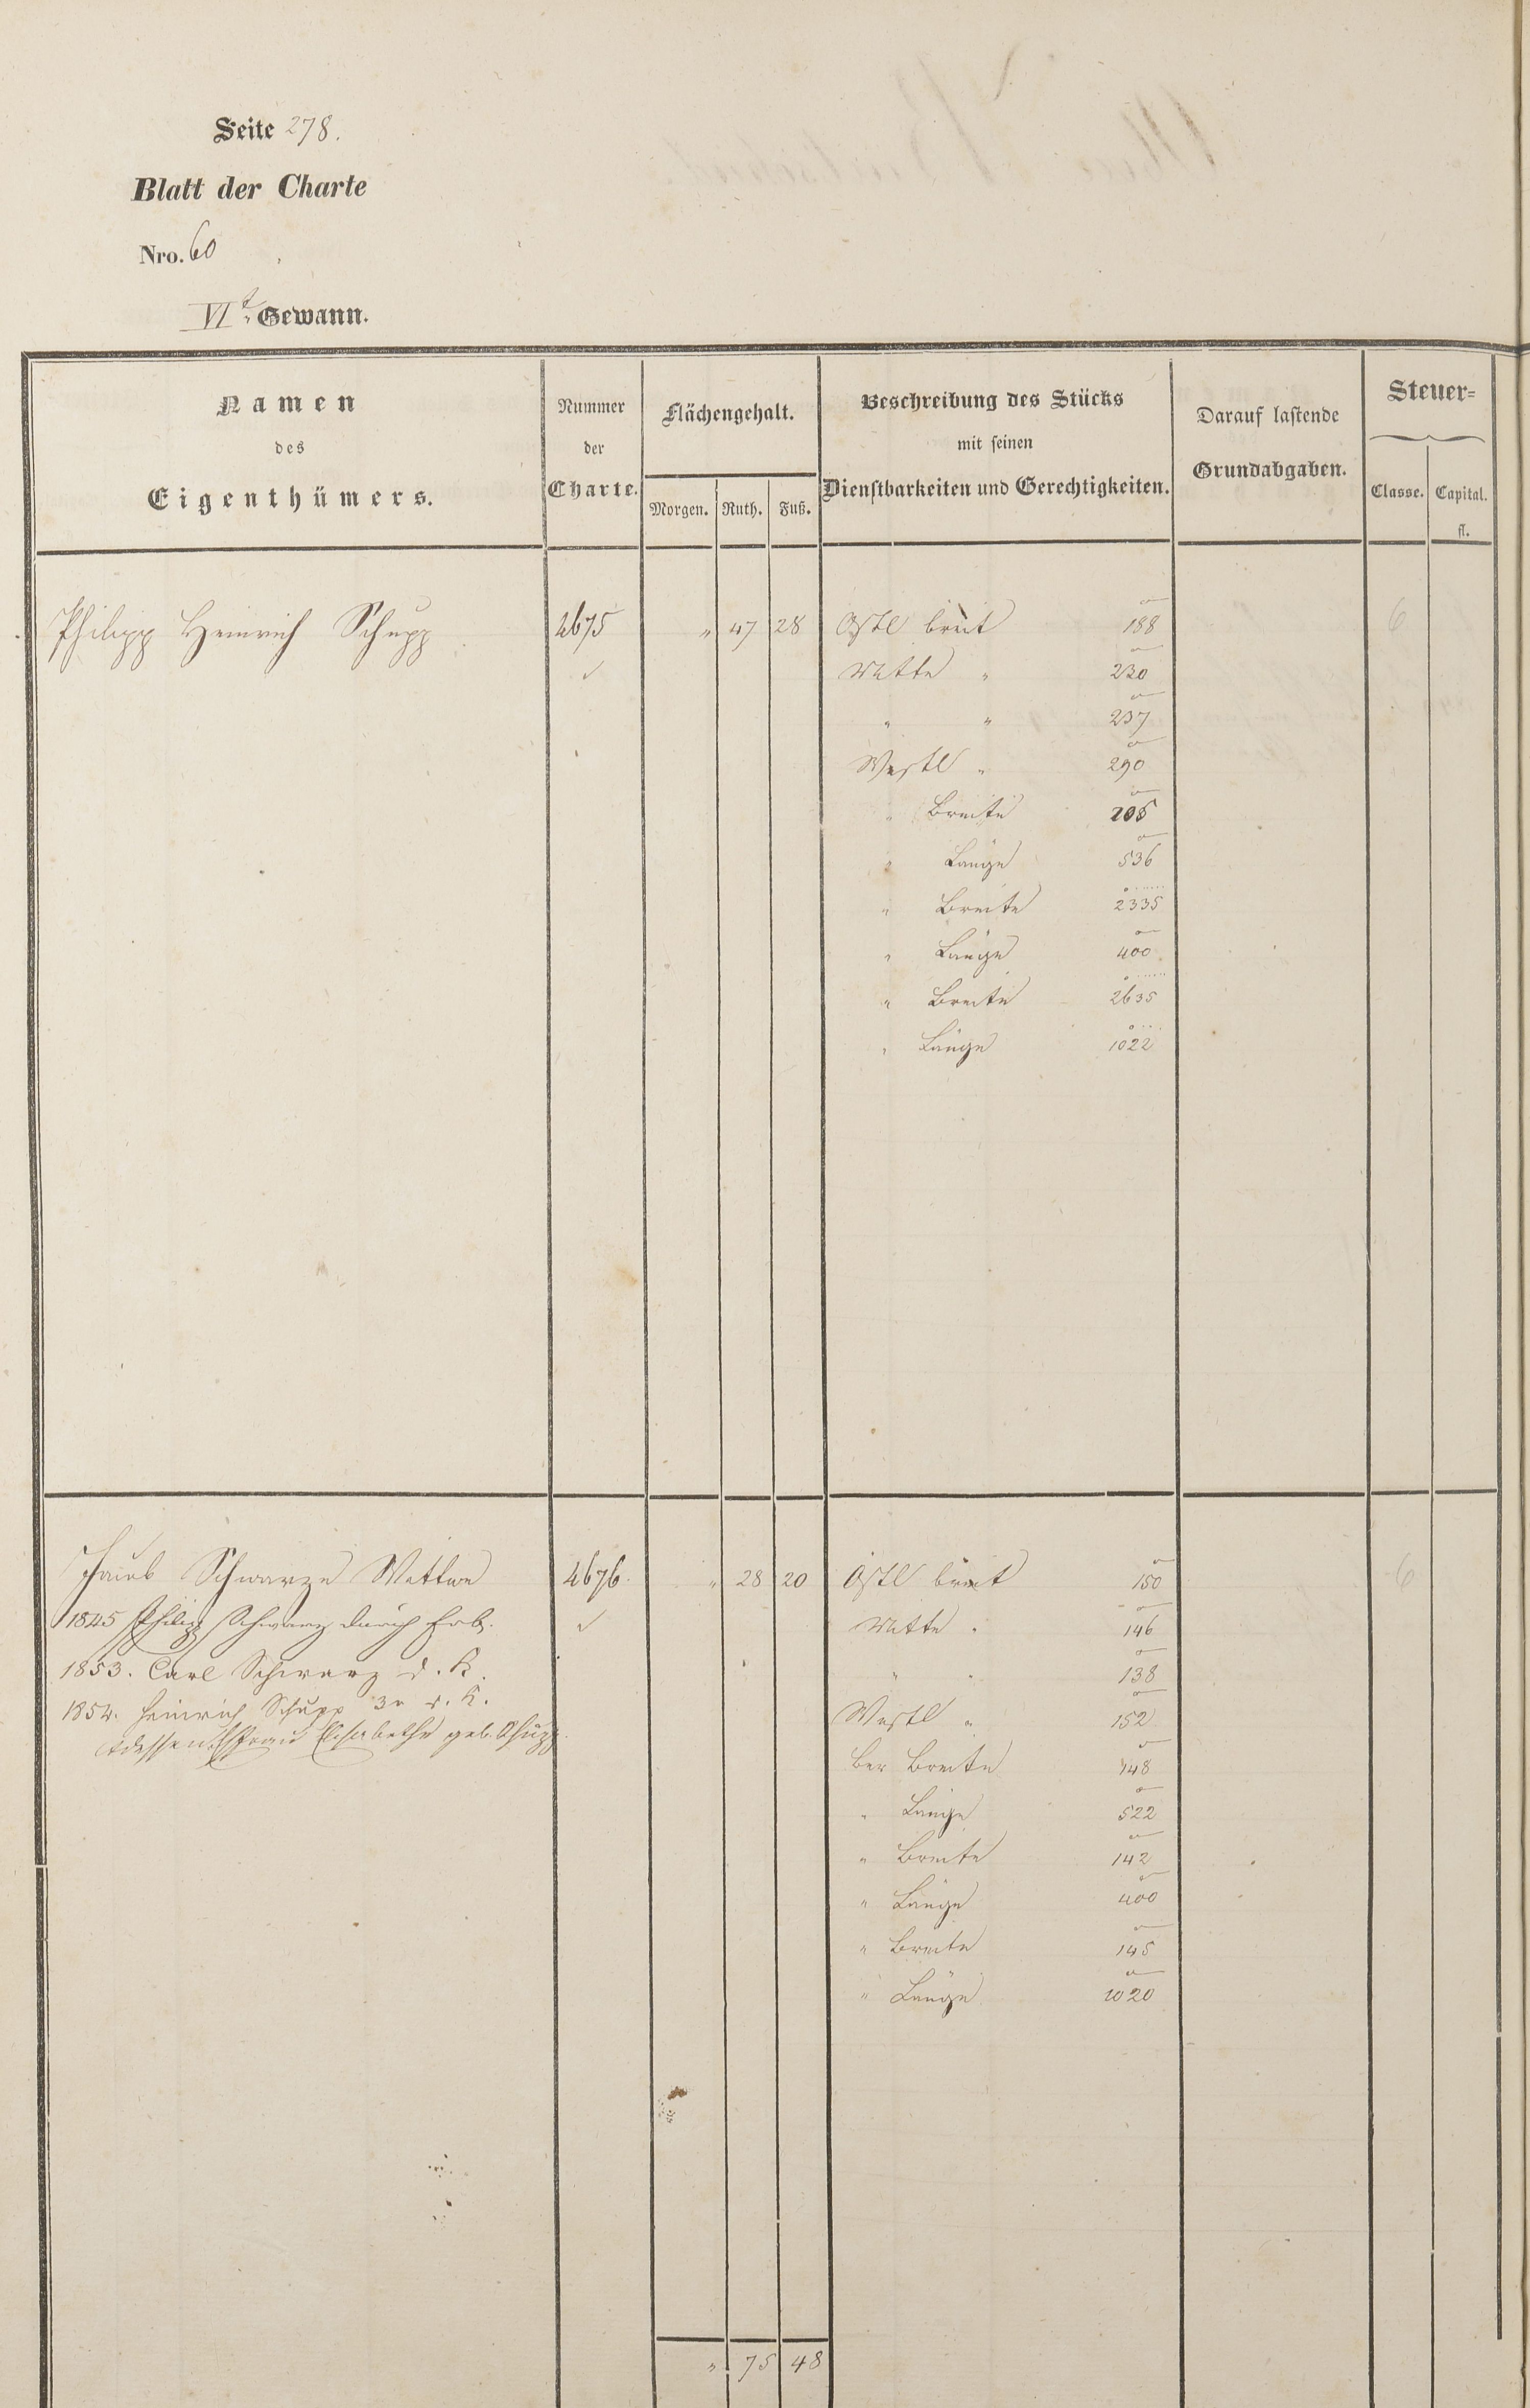 Seite 278.
Blatt der Charte
Nro. 60
VIt. Gewann.
Namen
des
Eigenthümers.
Nummer
der
Charte.
Flächengehalt.
Morgen. Ruth. Fuß.
Beschreibung des Stücks
mit seinen
Dienstbarkeiten und Gerechtigkeiten.
Darauf lastende
Grundabgaben.
Steuer-
Classe. Capital.
fl.
Philipp Heinrich Schupp 4675 " 47 28 Östl breit 188 6
Mitte " 230
" " 237
Westl " 290
" Breite 205
" Länge 536
" Breite 2335
" Länge 400
" Breite 2635
" Länge 1022
Jacob Schwarze Wittwe 4676. " 28 20 Östl breit 150 6
1845 Philipp Schwarz durch Erb. Mitte " 146
1853. Carl Schwarz d. K. " " 138
1854. Heinrich Schupp 3r d. K. Westl " 152
dessen Ehefrau Elisabethe geb. Schupp
Ber Breite 148
" Länge 522
" Breite 142
" Länge 400
" Breite 145
" Länge 1020
" 75 48